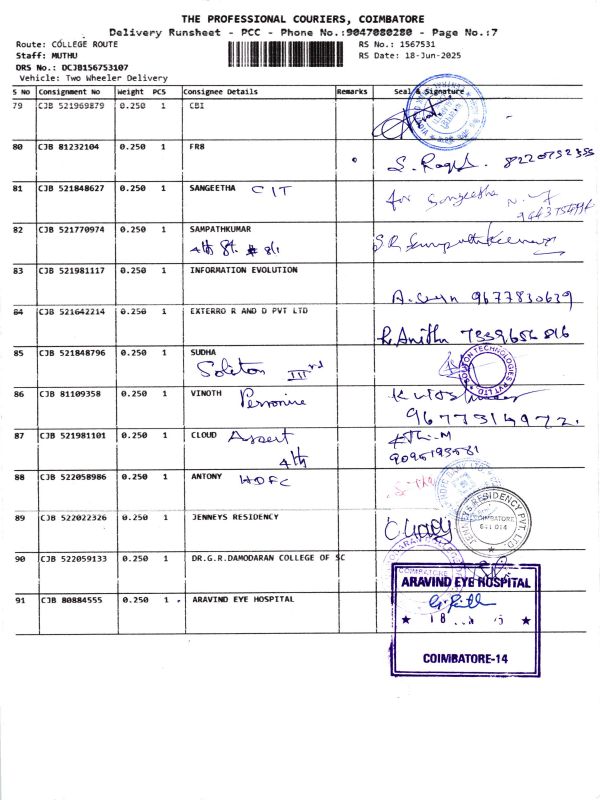 THE PROFESSIONAL COURIERS, COIMBATORE
Delivery Runsheet - PCC - Phone No.:9047080280 - Page No.:7
Route: COLLEGE ROUTE RS No.: 1567531
Staff: MUTHU RS Date: 18-Jun-2025
DRS No.: DCJB156753107
Vehicle: Two Wheeler Delivery
S No Consignment No Weight PCS Consignee Details Remarks Seal & Signature
79 CJB 521969879 0.250 1 CBI
80 CJB 81232104 0.250 1 FR8
8220752355
81 CJB 521848627 0.250 1 SANGEETHA CIT for Sangeetha
82 CJB 521770974 0.250 1 SAMPATHKUMAR
4th St. # 8/1 S.R. Sampathkumar
83 CJB 521981117 0.250 1 INFORMATION EVOLUTION
9677830639
84 CJB 521642214 0.250 1 EXTERRO R AND D PVT LTD
R. Anitha 7339656816
85 CJB 521848796 0.250 1 SUDHA
Soliton IIIrd
TECHNOLOGIES PVT LTD
86 CJB 81109358 0.250 1 VINOTH
9677314972.
87 CJB 521981101 0.250 1 CLOUD Assert
4th 9095193581
88 CJB 522058986 0.250 1 ANTONY HDFC
89 CJB 522022326 0.250 1 JENNEYS RESIDENCY
JENNEYS RESIDENCY PVT. LTD.
COIMBATORE
641 014
90 CJB 522059133 0.250 1 DR.G.R.DAMODARAN COLLEGE OF SC
COIMBATORE
91 CJB 80884555 0.250 1 ARAVIND EYE HOSPITAL
ARAVIND EYE HOSPITAL
★ 18 ★
COIMBATORE-14